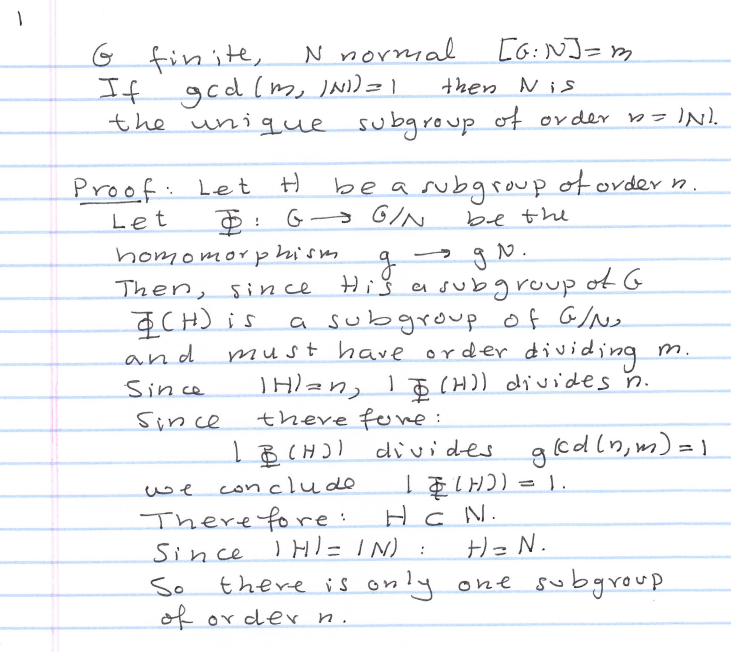 1
G finite, N normal [G:N]=m
If gcd(m, |N|)=1 then N is
the unique subgroup of order n=|N|.
Proof: Let H be a subgroup of order n.
Let Φ: G → G/N be the
homomorphism g → gN.
Then, since H is a subgroup of G
Φ(H) is a subgroup of G/N,
and must have order dividing m.
Since |H|=n, |Φ(H)| divides n.
Since therefore:
|Φ(H)| divides gcd(n,m)=1
we conclude |Φ(H)| = 1.
Therefore: H ⊂ N.
Since |H|=|N| : H=N.
So there is only one subgroup
of order n.